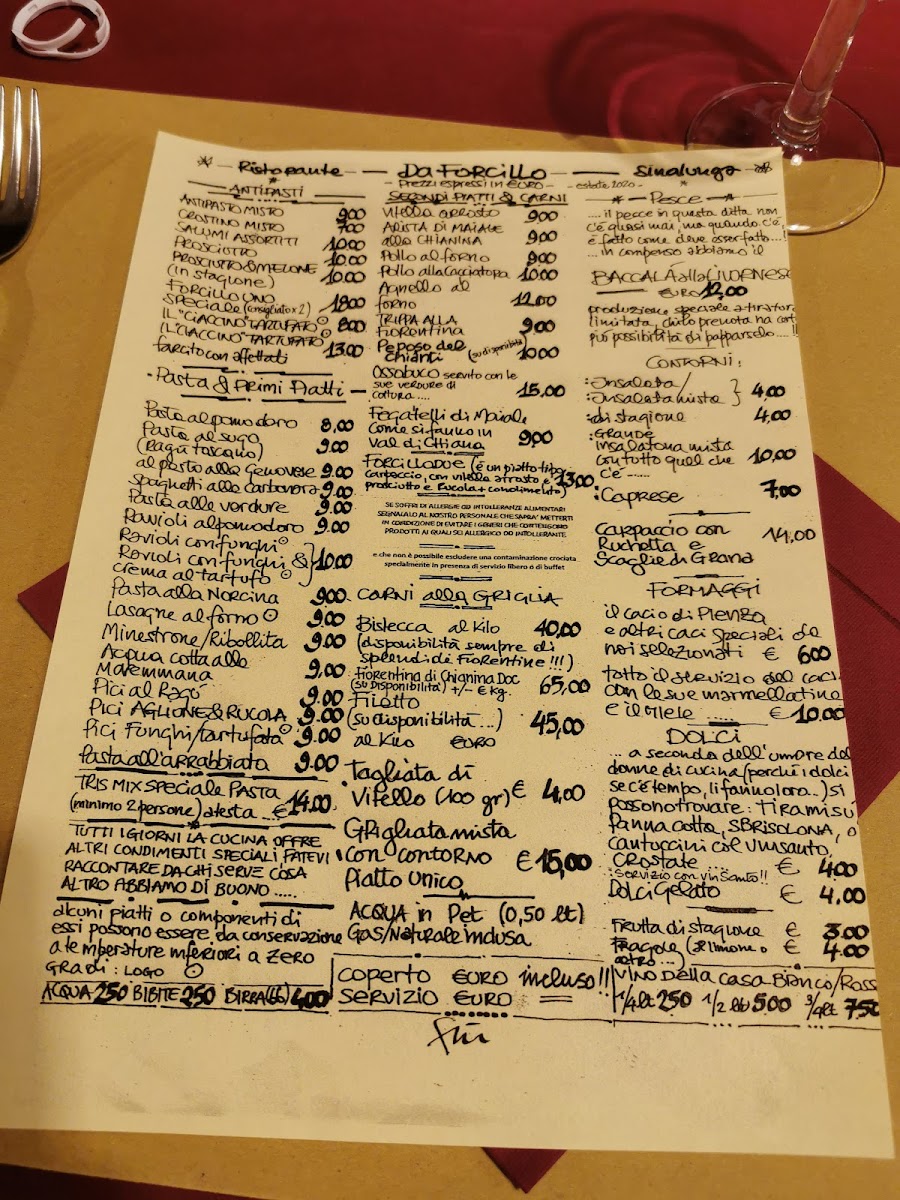 Ristorante — Da Forcillo — Sinalunga
— Prezzi espressi in €uro — — estate 2020 —
— ANTIPASTI —
ANTIPASTO MISTO 9,00
CROSTINO MISTO 7,00
SALUMI ASSORTITI 10,00
PROSCIUTTO 10,00
PROSCIUTTO & MELONE 10.00
(in stagione)
FORCILLO UNO
SPECIALE (consigliato x 2) 18,00
IL "CIACCINO" TARTUFATO 8,00
IL "CIACCINO" TARTUFATO
farcito con affettati 13,00
• Pasta & Primi Piatti —
Pasta al pomodoro 8,00
Pasta al sugo
(Ragù toscano) 9.00
al pesto alla Genovese 9.00
spaghetti alla carbonara 9.00
Pasta alle verdure 9.00
Ravioli al pomodoro 9.00
Ravioli con funghi
Ravioli con funghi & } 10,00
crema al tartufo
Pasta alla Norcina 9,00
Lasagne al forno 9.00
Minestrone/Ribollita 9.00
Acqua cotta alla
Maremmana 9,00
Pici al Ragù 9.00
Pici AGLIONE & RUCOLA 9.00
Pici Funghi/tartufata 9.00
Pasta all'arrabbiata 9.00
TRIS MIX SPECIALE PASTA
(minimo 2 persone) a testa ... € 14,00
TUTTI I GIORNI LA CUCINA OFFRE
ALTRI CONDIMENTI SPECIALI FATEVI
RACCONTARE DA CHI SERVE COSA
ALTRO ABBIAMO DI BUONO .....
alcuni piatti o componenti di
essi possono essere da conservazione
a temperature inferiori a Zero
Gradi: LOGO
ACQUA 250 BIBITE 250 BIRRA 400
SECONDI PIATTI & CARNI
Vitella arrosto 9,00
ARISTA DI MAIALE
alla CHIANINA 9,00
Pollo al forno 9,00
Pollo alla Cacciatora 10,00
Agnello al
forno 12,00
TRIPPA ALLA
Fiorentina 9,00
Peposo del
Chianti (su disponibilità) 10,00
Ossobuco servito con le
sue verdure di
cottura.... 15,00
Fegatelli di Maiale
Come si fanno in
Val di Chiana 9,00
FORCILLODUE (è un piatto tipo
carpaccio, con vitello arrosto e 13,00
prosciutto e Rucola + condimento)
SE SOFFRI DI ALLERGIE OD INTOLLERANZE ALIMENTARI
SEGNALALO AL NOSTRO PERSONALE CHE SAPRA' METTERTI
IN CONDIZIONE DI EVITARE I GENERI CHE CONTENGONO
PRODOTTI AI QUALI SEI ALLERGICO OD INTOLLERANTE
e che non è possibile escludere una contaminazione crociata
specialmente in presenza di servizio libero o di buffet
CARNI alla GRIGLIA
Bistecca al Kilo 40,00
(disponibilità sempre di
splendide Fiorentine !!!)
Fiorentina di Chianina Doc
(su DISPONIBILITA') +/- € kg. 65,00
Filetto
(su disponibilità ...) 45,00
al Kilo €URO
Tagliata di
Vitello (100 gr) € 4,00
Grigliata mista
con contorno € 15,00
Piatto Unico
ACQUA in Pet (0,50 lt)
Gas/Naturale inclusa
coperto €URO incluso!!
servizio €URO
fin
— Pesce —
.... il pesce in questa ditta non
c'è quasi mai, ma quando c'è,
è fatto come deve esser fatto...!
... in compenso abbiamo il
BACCALÀ alla LIVORNESE
€URO 12,00
produzione speciale a tiratura
limitata, chi lo prenota ha
può possibilità di papparselo....!!
CONTORNI:
:Insalata/
:Insalata mista } 4,00
:di stagione 4,00
:GRANDE
insalatona mista
con tutto quel che 10,00
c'è ......
:Caprese 7,00
Carpaccio con 14,00
Ruchetta e
Scaglie di Grana
FORMAGGI
il cacio di Pienza
e altri caci speciali da
noi selezionati € 6,00
tutto il servizio del
con le sue marmellatine
e il Miele ..... € 10,00
DOLCI
... a seconda dell'umore del
donne di cucina (perchè i dolci
se c'è tempo, li fanno loro..) si
possono trovare: tiramisù
Panna cotta, SBRISOLONA, o
cantuccini col Vinsanto,
CROSTATE ... € 4,00
:Servizio con vin santo!!
Dolci Gelato € 4,00
Frutta di stagione € 3.00
Fragole (al limone o € 4.00
altro...)
VINO Della casa Bianco/Ross
1/4 lt 250 1/2 lt 5,00 3/4 lt 7,50